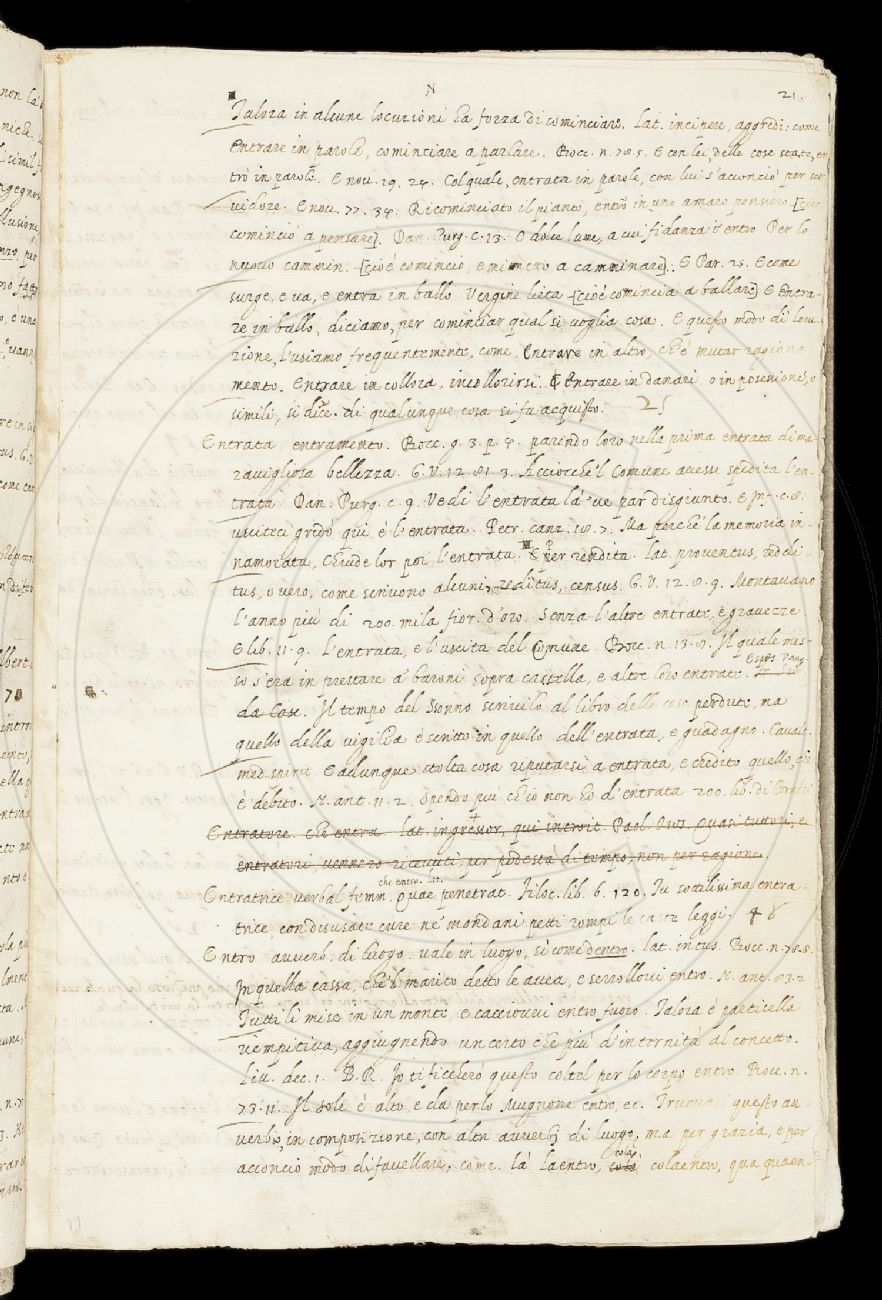 N
21.
Talora in alcune locuzioni ha forza di cominciare. Lat. incipere, aggredi: come
Entrare in parole, cominciare a parlare. Bocc. n. 78. 5. E con lei, delle cose state, en
trò in parole. E nov. 19. 24. Col quale, entrata in parole, con lui s'acconciò per ser
vidore. E nov. 77. 34. Ricominciato il pianto, entrò in uno amaro pensiero [cioè
cominciò a pensare]. Dan. Purg. c. 13. O dolce lume, a cui fidanza i' entro Per lo
nuovo cammin. [cioè comincio, e mi metto a camminare]. E Par. 25. E come
surge, e va, e entra in ballo Vergine lieta [cioè comincia a ballare] E Entra-
re in ballo, diciamo, per cominciar qual si voglia cosa. E questo modo di locu-
zione, l'usiamo frequentemente, come, Entrare in altro, ch'è mutar ragiona
mento. Entrare in collora, incollorirsi. E Entrare in danari o in possessione, o
simili, si dice di qualunque cosa si fa acquisto. 25
Entrata. entramento. Bocc. g. 3. p. 4. parendo loro nella prima entrata di ma
ravigliosa bellezza. G. V. 12. 81. 3. Acciocchè 'l Comune avesse spedita l'en-
trata. Dan. Purg. c. 9. Vedi l'entrata là 've par disgiunto. E Inf. c. 8.
usciteci gridò qui è l'entrata. Petr. canz. 18. 7. Ma perchè la memoria in-
namorata, Chiude lor poi l'entrata. E Per rendita. lat. proventus, reddi-
tus, o vero, come scrivono alcuni, reditus, census. G. V. 12. 8. 9. Montavano
l'anno più di 200. mila fior. d'oro. Senza l'altre entrate, e gravezze
E lib. 11. 9. L'entrata, e l'uscita del Comune. Bocc. n. 13. 8. Il quale mes-
so s'era in prestare a' baroni sopra castella, e altre loro entrate. Espos. Vang.
da Casc. Il tempo del sonno scrivilo al libro delle cose perdute, ma
quello della vigilia è scritto in quello dell'entrata, e guadagno. Cavalc.
med. spirit. E adunque stolta cosa riputarsi a entrata, e credito quello, che
è debito. N. ant. 11. 2. Spendo più ch'io non ho d'entrata 200. lib. di
Entratore. che entra. lat. ingressor, qui introit. Paol. Oros. Quasi tuttori, e
entratori, vennero ricevuti, per podestà di tempo, non per ragione.
che entra. lat.
Entratrice. verbal femm. Quae penetrat. Filoc. lib. 6. 120. Tu sottilissima entra-
trice, con disusate cure ne' mondani petti rompi le caste leggi.
Entro avverb. di luogo. vale in luogo, sì come dentro. lat. intus. Bocc. n. 78. 8.
In quella cassa, che 'l marito detto le avea, e serrollovi entro. N. ant. 83. 2
Tutti li mise in un monte, e cacciovvi entro fuoco. Talora è particella
riempitiva, aggiugnendo un certo che più d'internità al concetto.
Liv. dec. 1. B. R. Io ti ficcherò questo coltel per lo corpo entro. Bocc. n.
73. 11. Il sole è alto, e dà per lo Mugnone entro, ec. Truovasi questo av
verbio, in composizione, con altri avverbj di luogo, ma per grazia, e per
acconcio modo di favellare, come. là laentro, colà colaentro, qua quaen